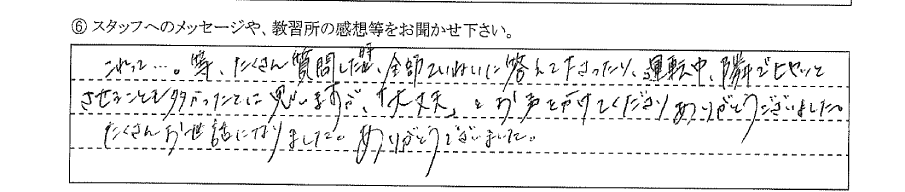 ⑥ スタッフへのメッセージや、教習所の感想等をお聞かせ下さい。
これって…。等、たくさん質問した時、全部ていねいに答えて下さったり、運転中、隣でヒヤッと
させることも多かったとは思いますが、「大丈夫」とお声をかけてくださりありがとうございました。
たくさんお世話になりました。ありがとうございました。